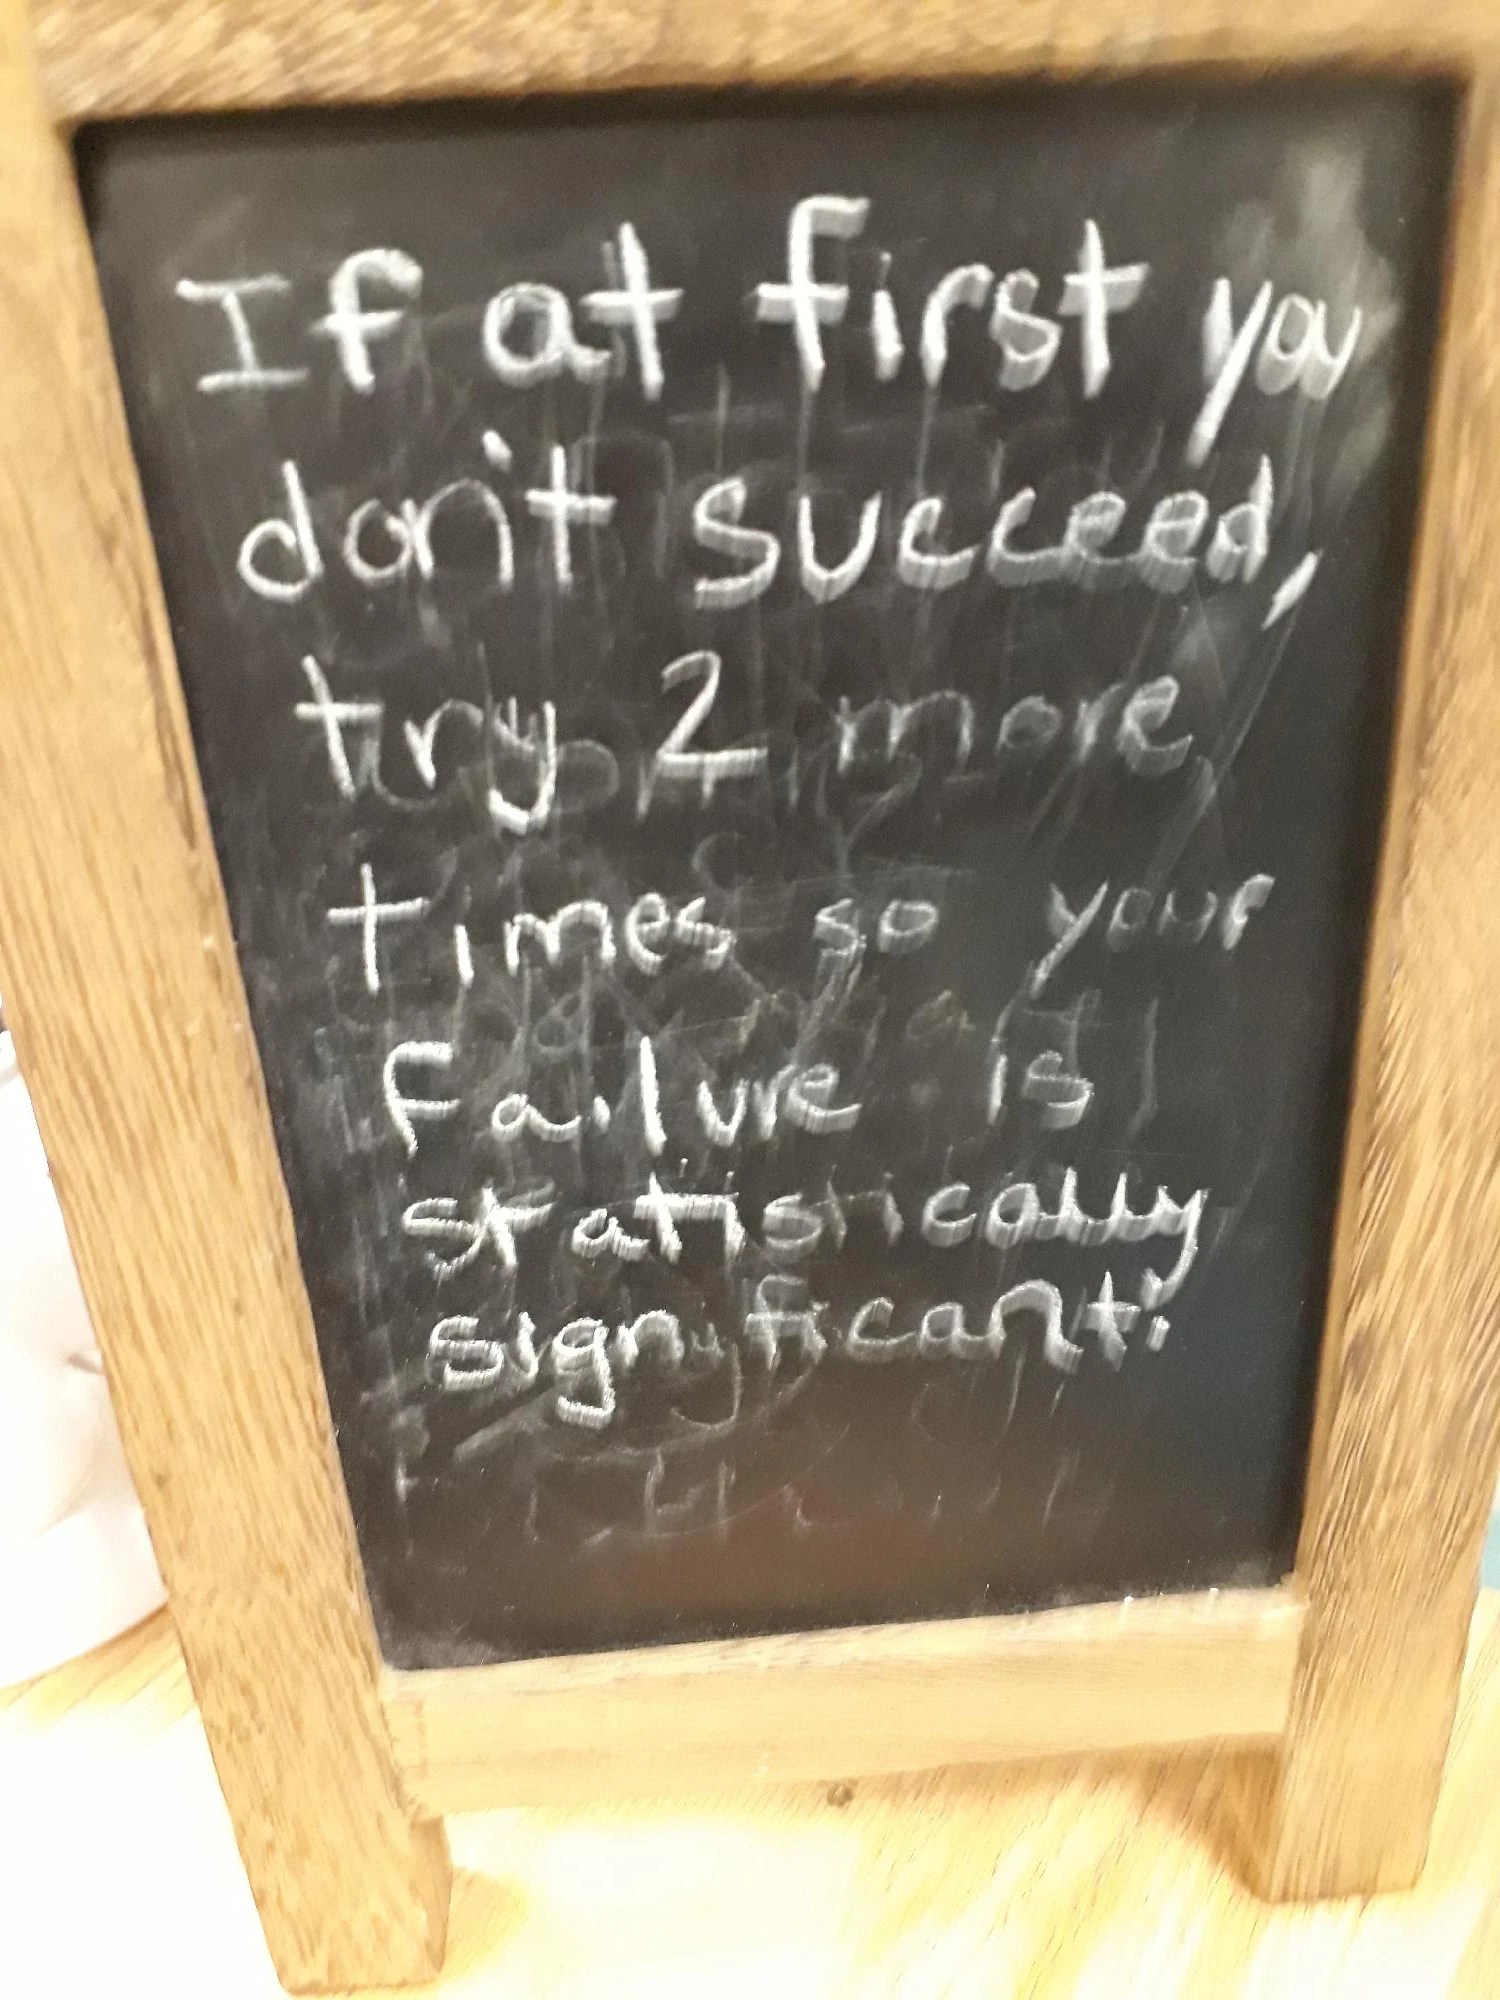 If at first you
don't succeed,
try 2 more
times so your
failure is
statistically
significant!